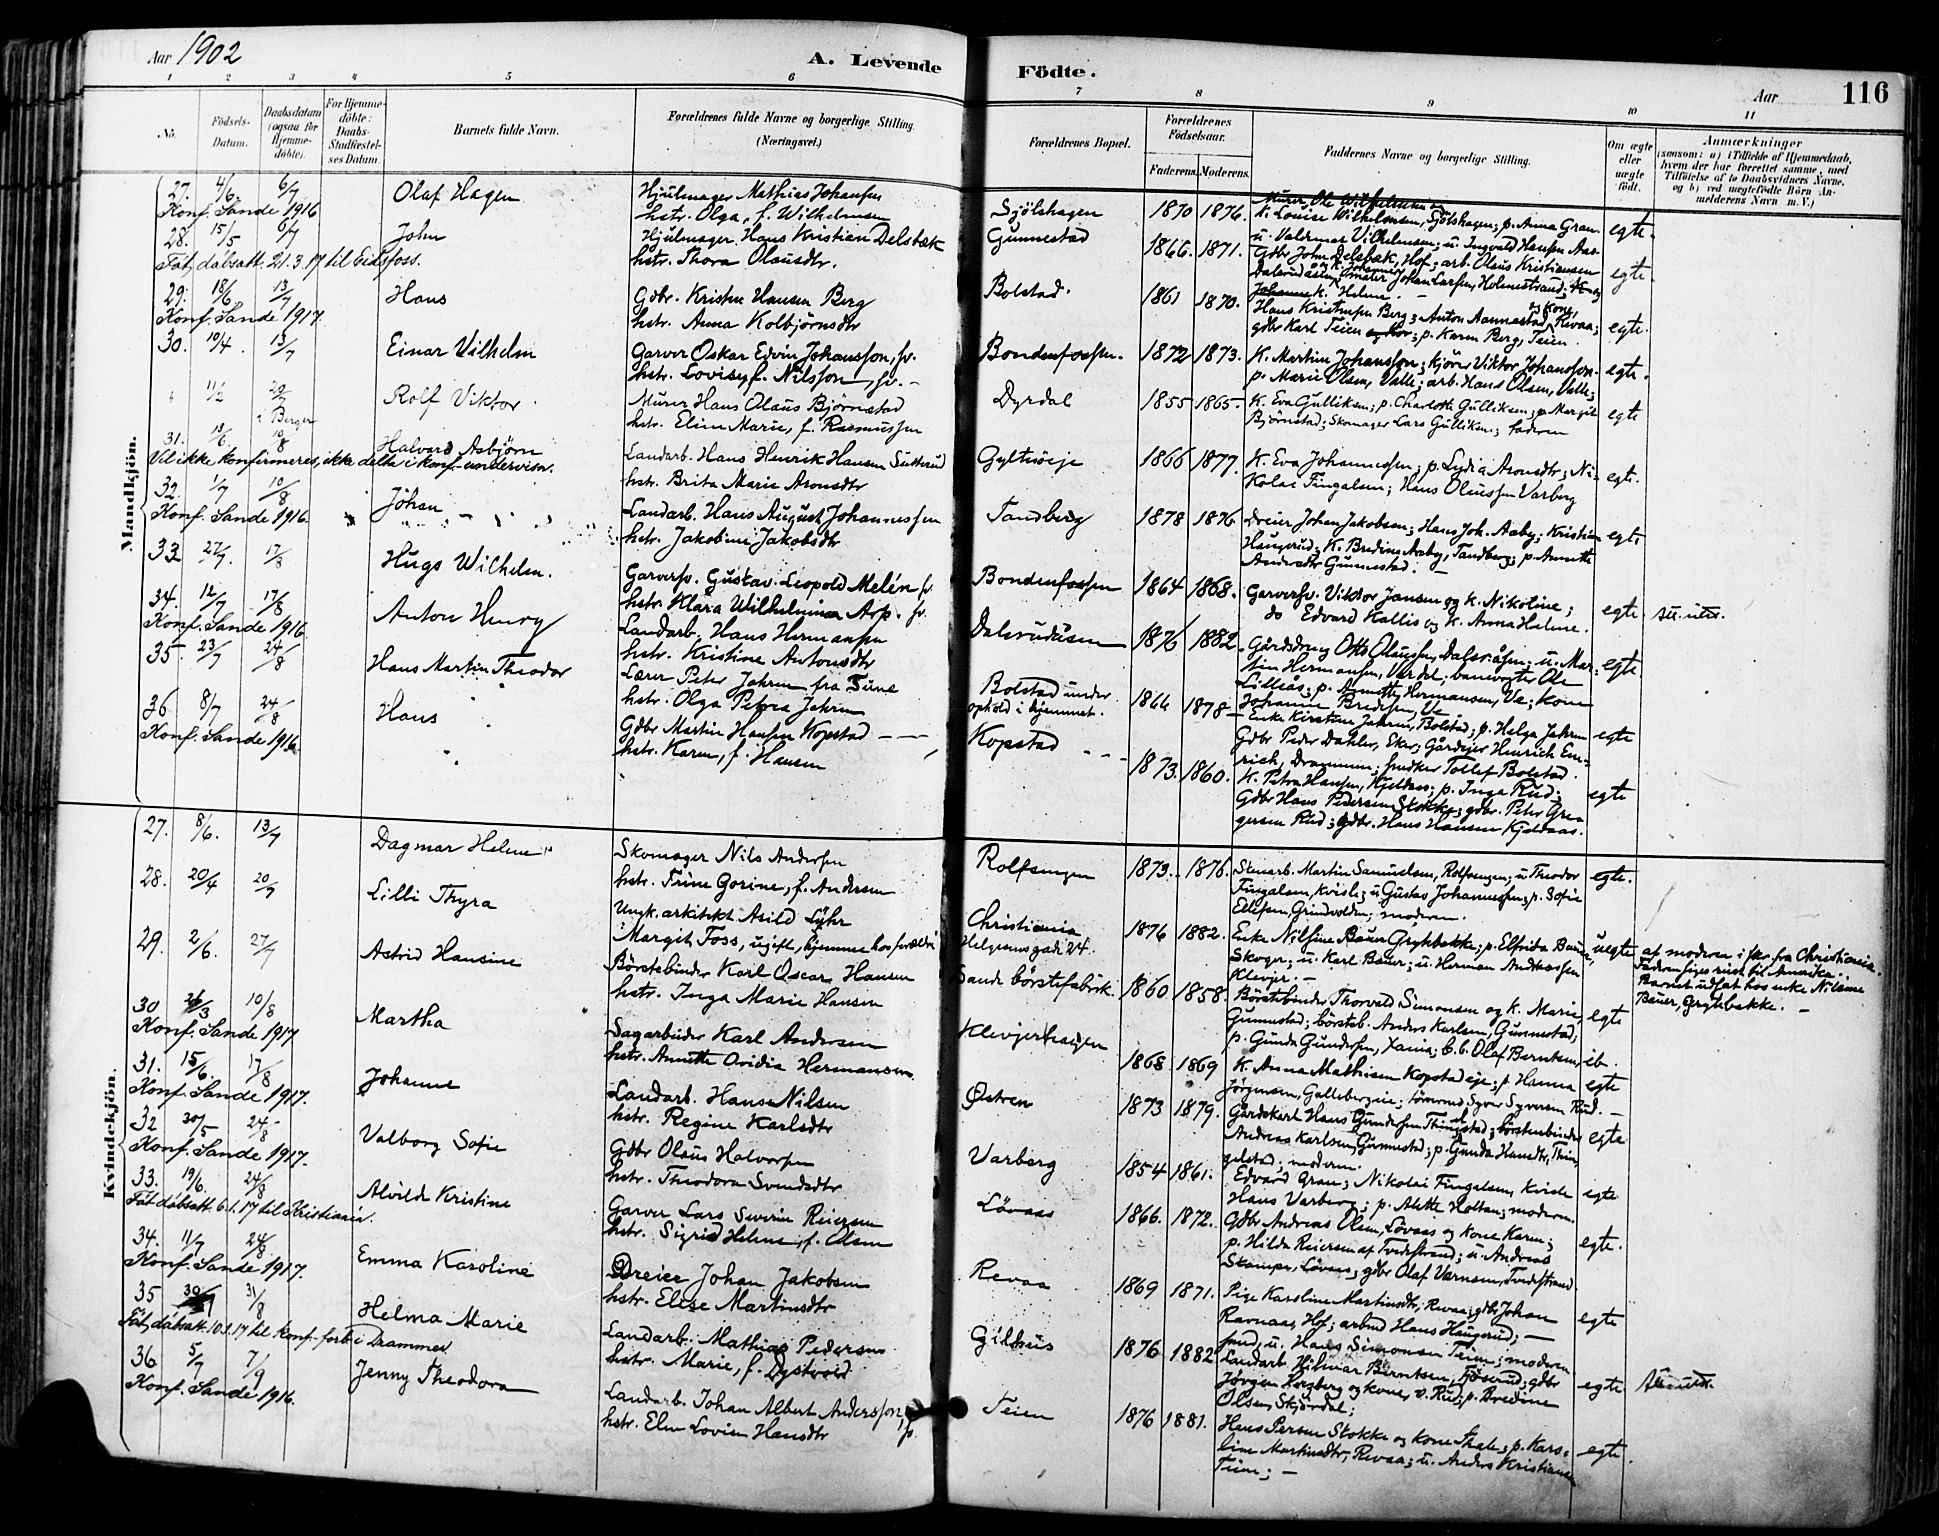 Aar 1902
A. Levende Födte.
Aar
116
1 2 3 4 5 6 7 8 9 10 11
No.
Födsels-Datum.
Daabsdatum (ogsaa for Hjemme-döbte).
For Hjemme-döbte: Daabs-Stadfæstel-ses Datum.
Barnets fulde Navn.
Forældrenes fulde Navne og borgerlige Stilling.
(Næringsvei.)
Forældrenes Bopæl.
Forældrenes Födselsaar.
Faderens. Moderens.
Faddernes Navne og borgerlige Stilling.
Om ægte eller uægte født.
Anmærkninger
(saasom: a) i Tilfælde af Hjemmedaab, hvem der har forrettet samme, med Tilföielse af to Daabsvidners Navne, og b) ved uægtefödte Börn An-melderens Navn m. V.)
Mandkjön.
27. 4/6 6/7 Olaf Hagen
Hjulmager Mathias Johansen
hstr. Olga, f. Wilhelmsen
Sjölshagen 1870 1876.
K. Louise Wilhelmsen, Sjölshagen; p. Anna Gran
u. Valdemar Vilhelmsen; u. Ingvald Hansen Aas-
egte.
Konf. Sande 1916
28. 15/5 6/7 John
Hjulmager Hans Kristian Delebæk
hstr. Thora Olausdtr.
Gunnestad 1866. 1871.
Gdbr John Delebæk, Hof; arb. Olaus Kristiansen
Johan Larsen, Holmestrand;
k. Helene. –
egte.
Fåt dåbsatt. 21.3.17 til Eidsfoss.
29. 18/6 13/7 Hans
Gdbr. Kristen Hansen Berg
hstr. Anna Kolbjørnsdtr
Bolstad. 1861 1870.
Hans Kristensen Berg; Anton Aamestad Revaa;
gdbr Karl Teien; p. Karen Berg, Teien.
egte.
Konf. Sande 1917.
30. 10/4 13/7 Einar Vilhelm
Garver Oskar Edvin Johansson, sv.
hstr. Lovise f. Nilsson, sv. –
Bondenfossen. 1872 1873.
K. Martine Johansson; kjörer Viktor Johansson
p. Marie Olsen, Valle; arb. Hans Olsen, Valle;
egte.
11/2 20/7 i Berger Rolf Viktor
Murer Hans Olaus Björnstad
hstr. Eline Marie, f. Rasmussen
Dyrdal 1855 1865
K. Eva Gulliksen; p. Charlotte Gulliksen; p. Margit
Björnstad; Skomager Lars Gulliksen; faderen
egte
31. 13/6 10/8 Halvard Asbjørn
Landarb. Hans Henrik Hansen
hstr. Brita Marie Aronsdtr
Gylteeie 1866 1877.
K. Eva Johannessen; p. Lydia Aronsdtr; Ni-
kolai Fingalsen; Hans Olaussen Varberg
egte.
Vil ikke konfirmeres, ikke delta i konf-undervisn.
32. 1/7 10/8 Johan
Landarb. Hans August Johannessen
hstr. Jakobine Jakobsdtr
Tandberg 1878 1876
Dreier Johan Jakobsen; Hans Joh. Aaby; Kristian
Haugerud; K. Bredine Aaby, Tandberg; p. Annette
Andersdtr Gunnestad. –
egte
Konf. Sande 1916.
33 27/7 17/8 Hugo Wilhelm.
Garversv. Gustav Leopold Melén sv.
hstr. Klara Wilhelmina Arp. sv.
Bondenfossen 1864 1868.
Garversv. Viktor Jansen og k. Nikoline;
do Edvard Kallis og K. Anna Helene.
egte
34. 12/7 17/8 Anton Henry
Landarb. Hans Hermansen
hstr. Kristine Antonsdtr
Dalsrudåsen 1876 1882.
Gårdsdreng Otto Olaussen, Dalsråsen; u. Mar-
tin Hermansen, Verdal; banevogter Ole
Lilleås; p. Annette Hermansen, Ve; kone
Johanne Bredesen, Ve –
egte
Konf. Sande 1916.
35. 23/7 24/8 Hans Martin Theodor
Lærer Peter Jahren fra Time
hstr. Olga Petra Jahren
Bolstad under ophold i hjemmet.
1864 1878
Enke Kirsten Jahren, Bolstad; p. Helga Jahren
Gdbr Peder Dahler, Eker; Gårdeier Henrich Em-
rich, Drammen; snedker Tollef Bolstad.
egte
36 8/7 24/8 Hans
Gdbr Martin Hansen Kopstad
hstr. Karen, f. Hansen
Kopstad 1873. 1860.
K. Petra Hansen, Kjeldaas; p. Inga Rud;
Gdbr Hans Pedersen Stokke; gdbr. Peter Gre-
gersen Rud; gdbr. Hans Hansen Kjeldaas.
egte
Konf. Sande 1916.
Kvindekjön.
27. 8/6. 13/7 Dagmar Helene
Skomager Nils Andersen
hstr. Trine Gorine, f. Andersen
Rolfsengen 1873. 1876.
Stenarb. Martin Samuelsen, Rolfsengen; u. Theodor
Fingalsen, Kvisle; u Gustav Johannessen; p. Sofie
Ellefsen, Grindvolden; moderen.
egte.
28. 20/4 20/7 Lilli Thyra
Ungk. arkitekt Axild Lühr
Margit Foss, ugift, hjemme hos forældre
Christiania Helgesensgade 24. 1876 1882.
Enke Nilsine Bauer Grytebakke; p. Elfrida Bauer,
Skoger; u. Karl Bauer; u. Herman Andersen
Klevjer. –
uegte
af moderen i skr. fra Christiania.
Faderen siges reist til Amerika.
Barnet udsat hos enke Nilsine
Bauer, Grytebakke. –
29. 2/6. 27/7 Astrid Hansine
Börstebinder Karl Oscar Hansen
hstr. Inga Marie Hansen
Sande börstefabrik. 1860 1858
Börstebinder Thorvald Simonsen og k. Marie,
Gunnestad; börsteb. Anders Karlsen, Gunnestad;
p. Gunda Gundersen, Xania; b.b. Olaf Berntsen, ib.
egte
30 26/3 10/8 Martha
Sagarbeider Karl Andersen
hstr. Annette Ovidia Hermansen
Klevjerhaugen 1868 1869
K. Anna Mathisen Kopstadeie; p. Hanna
Jörgensen, Gallebergeie; tömmerm Syver Syversen Rud. –
egte
Konf. Sande 1917
31. 15/6. 17/8 Johanne
Landarb. Hans Nilsen
hstr. Regine Karlsdtr
Østren 1873 1879.
Gårdskarl Hans Gundersen Thingelstad; börstenbinder
Andreas Karlsen, Gunnestad; p. Gunda Hansdtr, Thin-
gelstad; moderen.
egte
Konf. Sande 1917.
32 30/5 24/8 Valborg Sofie
Gdbr Olaus Halvorsen
hstr. Theodora Svendsdtr
Varberg 1854 1861.
Edvard Gran; Nikolai Fingalsen, Kvisle
Hans Varberg; p. Alette Holtan; moderen.
egte
Konf. Sande 1917.
33. 19/6. 24/8 Alvilde Kristine
Garver Lars Severin Reiersen
hstr. Sigrid Helene, f. Olsen
Lövaas 1866. 1872.
Gdbr Andreas Olsen, Lövaas og kone Karen;
p. Hilda Reiersen af Tvedestrand; u. Andreas
Skampe, Lövaas; gdbr Olaf Værnesen, Tvedestrand
egte.
Fåt dåbsatt. 6.1.17 til Kristiania.
34. 11/7 24/8 Emma Karoline
Dreier Johan Jakobsen
hstr. Elise Martinsdtr
Revaa 1869 1871.
Pige Karoline Martinsdtr, Revaa; gdbr Johan
Ravnaas, Hof; arbmd Hans Haugerud; –
smd; u. Hans Simonsen Teien; moderen
egte
Konf. Sande 1917.
35 31/8 Helma Marie
Landarb. Mathias Pedersen
hstr. Marie, f. Dystvold
Gilhus 1876 1882
Landarb. Hilmar Berntsen, Fossrud; gdbr
Jörgen Horgberg og kone, v. Rud; p. Bredine
Olsen, Skjördal;
egte
Fåt dåbsatt. 10.1.17 til konf-forb. i Drammen
36 5/7 7/9 Jenny Theodora
Landarb. Johan Albert Andersson, sv.
hstr. Elen Lovise Hansdtr
Teien 1876 1881.
Hans Persen Stokke og kone Thale; p. Karo-
line Martinsdtr, Revaa; u. Anders Kristiansen
Teien; –
egte.
Konf. Sande 1916.